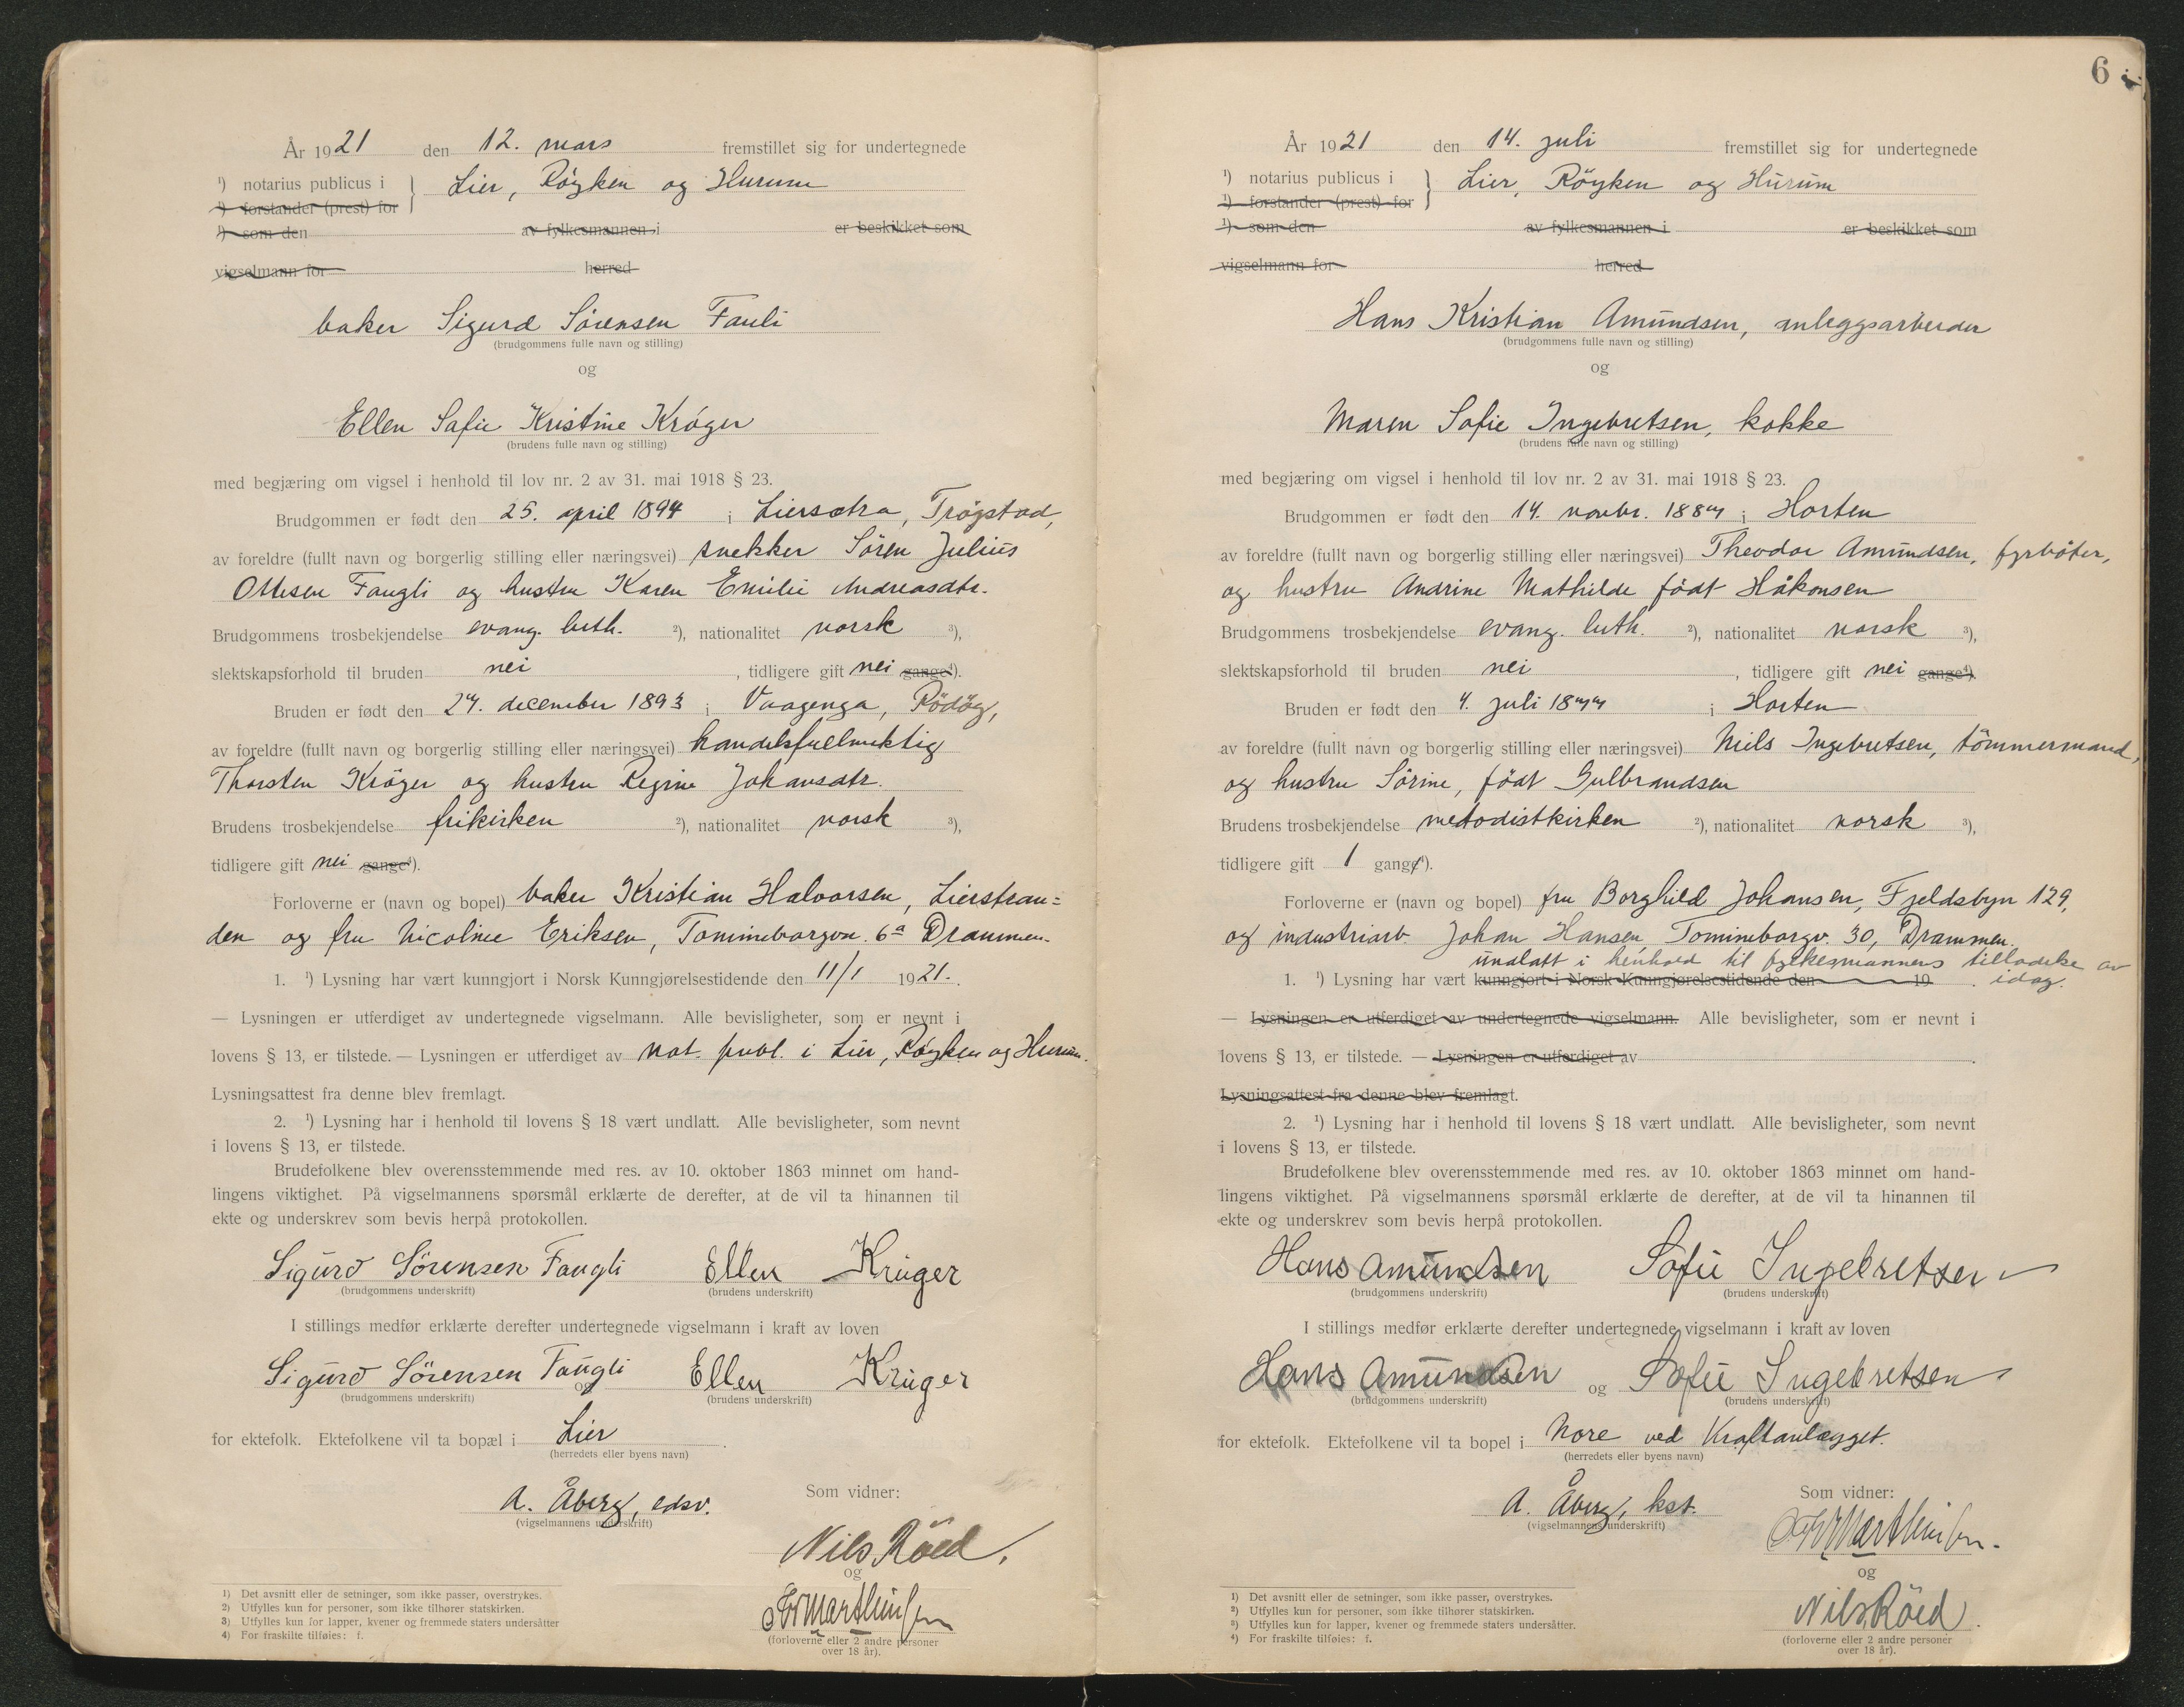 År 1921 den 12. mars fremstillet sig for undertegnede
¹) notarius publicus i } Lier, Röyken og Hurum
¹) forstander (prest) for
¹) som den av fylkesmannen i er beskikket som
vigselmann for herred
baker Sigurd Sörensen Fauli
(brudgommens fulle navn og stilling)
og
Ellen Sofie Kristine Kröger
(brudens fulle navn og stilling)
med begjæring om vigsel i henhold til lov nr. 2 av 31. mai 1918 § 23.
Brudgommen er født den 25. april 1894 i Liersætra, Trögstad,
av foreldre (fullt navn og borgerlig stilling eller næringsvei) snekker Sören Julius
Ottesen Faugli og hustru Karen Emilie Andreasdtr.
Brudgommens trosbekjendelse evang. luth. ²), nationalitet norsk ³),
slektskapsforhold til bruden nei, tidligere gift nei gange⁴).
Bruden er født den 27. december 1893 i Vaagenga, Rödöy,
av foreldre (fullt navn og borgerlig stilling eller næringsvei) handelsfullmektig
Thorsten Kröger og hustru Regine Johansdtr.
Brudens trosbekjendelse frikirken ²), nationalitet norsk ³),
tidligere gift nei gange⁴).
Forloverne er (navn og bopel) baker Kristian Halvorsen, Lierstran=
den og fru Nicoline Eriksen, Tomineborgvn. 6ª Drammen.
1. ¹) Lysning har vært kunngjort i Norsk Kunngjørelsestidende den 11/1 1921.
— Lysningen er utferdiget av undertegnede vigselmann. Alle bevisligheter, som er nevnt i
lovens § 13, er tilstede. — Lysningen er utferdiget av not. publ. i Lier, Röyken og Hurum.
Lysningsattest fra denne blev fremlagt.
2. ¹) Lysning har i henhold til lovens § 18 vært undlatt. Alle bevisligheter, som nevnt
i lovens § 13, er tilstede.
Brudefolkene blev overensstemmende med res. av 10. oktober 1863 minnet om hand-
lingens viktighet. På vigselmannens spørsmål erklærte de derefter, at de vil ta hinannen til
ekte og underskrev som bevis herpå protokollen.
Sigurd Sörensen Faugli Ellen Krüger
(brudgommens underskrift) (brudens underskrift)
I stillings medfør erklærte derefter undertegnede vigselmann i kraft av loven
Sigurd Sörensen Faugli og Ellen Krüger
(brudgommens underskrift) (brudens underskrift)
for ektefolk. Ektefolkene vil ta bopæl i Lier.
(herredets eller byens navn)
A. Åberg, edsv. Som vidner:
(vigselmannens underskrift)
Nils Röed.
og
Marthinsen
(forloverne eller 2 andre personer
over 18 år).
1) Det avsnitt eller de setninger, som ikke passer, overstrykes.
2) Utfylles kun for personer, som ikke tilhører statskirken.
3) Utfylles kun for lapper, kvener og fremmede staters undersåtter
4) For fraskilte tilføies: f.
6
År 1921 den 14. juli fremstillet sig for undertegnede
¹) notarius publicus i } Lier, Röyken og Hurum
¹) forstander (prest) for
¹) som den av fylkesmannen i er beskikket som
vigselmann for herred
Hans Kristian Amundsen, anleggsarbeider
(brudgommens fulle navn og stilling)
og
Maren Sofie Ingebretsen, kokke
(brudens fulle navn og stilling)
med begjæring om vigsel i henhold til lov nr. 2 av 31. mai 1918 § 23.
Brudgommen er født den 14. novbr. 1887 i Horten
av foreldre (fullt navn og borgerlig stilling eller næringsvei) Theodor Amundsen, fyrböter,
og hustru Andrine Mathilde födt Håkonsen
Brudgommens trosbekjendelse evang. luth. ²), nationalitet norsk ³),
slektskapsforhold til bruden nei, tidligere gift nei gange⁴).
Bruden er født den 4. juli 1877 i Horten
av foreldre (fullt navn og borgerlig stilling eller næringsvei) Nils Ingebretsen, tömmermand,
og hustru Sörine, födt Gulbrandsen
Brudens trosbekjendelse metodistkirken ²), nationalitet norsk ³),
tidligere gift 1 gang⁴).
Forloverne er (navn og bopel) fru Borghild Johansen, Fjeldsbyn 129,
og industriarb. Johan Hansen, Tomineborgv. 30, Drammen.
undlatt i henhold til fylkesmannens tilladelse av
1. ¹) Lysning har vært kunngjort i Norsk Kunngjørelsestidende den 19 . idag.
— Lysningen er utferdiget av undertegnede vigselmann. Alle bevisligheter, som er nevnt i
lovens § 13, er tilstede. — Lysningen er utferdiget av .
Lysningsattest fra denne blev fremlagt.
2. ¹) Lysning har i henhold til lovens § 18 vært undlatt. Alle bevisligheter, som nevnt
i lovens § 13, er tilstede.
Brudefolkene blev overensstemmende med res. av 10. oktober 1863 minnet om hand-
lingens viktighet. På vigselmannens spørsmål erklærte de derefter, at de vil ta hinannen til
ekte og underskrev som bevis herpå protokollen.
Hans Amundsen Sofie Ingebretsen
(brudgommens underskrift) (brudens underskrift)
I stillings medfør erklærte derefter undertegnede vigselmann i kraft av loven
Hans Amundsen og Sofie Ingebretsen
(brudgommens underskrift) (brudens underskrift)
for ektefolk. Ektefolkene vil ta bopel i Nore ved Kraftanlægget.
(herredets eller byens navn)
A. Åberg, kst. Som vidner:
(vigselmannens underskrift)
Marthinsen.
og
Nils Röed.
(forloverne eller 2 andre personer
over 18 år).
1) Det avsnitt eller de setninger, som ikke passer, overstrykes.
2) Utfylles kun for personer, som ikke tilhører statskirken.
3) Utfylles kun for lapper, kvener og fremmede staters undersåtter.
4) For fraskilte tilføies: f.